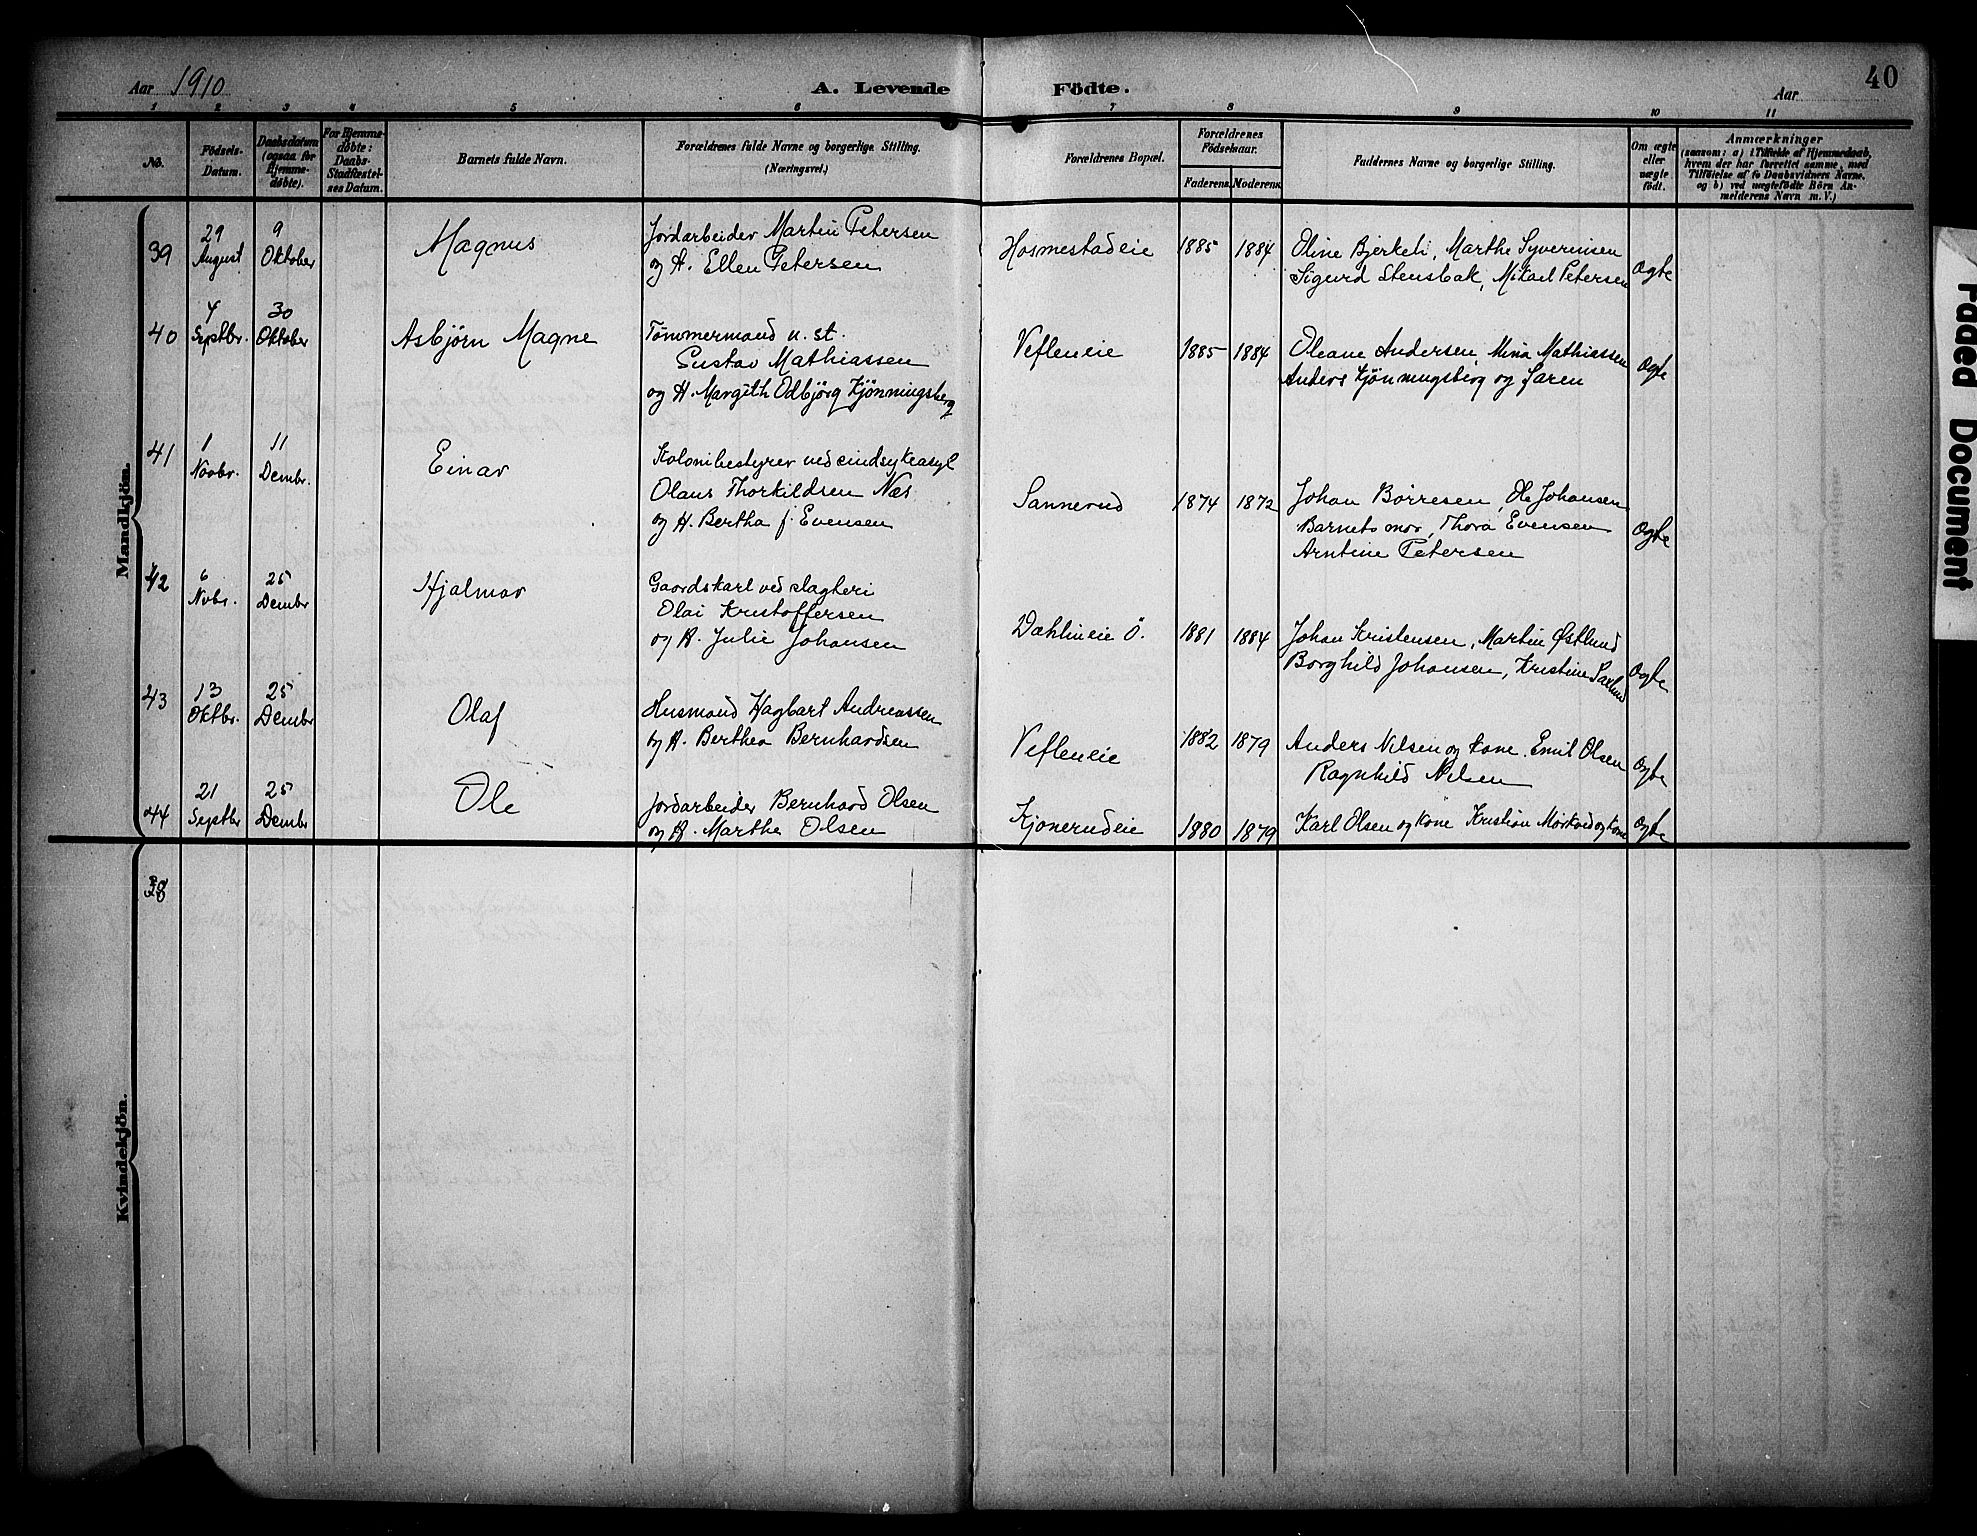 Aar 1910
A. Levende Födte.
Aar
40
1 2 3 4 5 6 7 8 9 10 11
No.
Födsels-
Datum.
Daabsdatum
(ogsaa for
Hjemme-
døbte).
For Hjemme-
døbte:
Daabs-
Stadfæstel-
ses Datum.
Barnets fulde Navn.
Forældrenes fulde Navne og borgerlige Stilling.
(Næringsvei.)
Forældrenes Bopæl.
Forældrenes
Födselsaar.
Faderens.
Moderens.
Faddernes Navne og borgerlige Stilling.
Om ægte
eller
uægte
födt.
Anmærkninger
(saasom: a) i Tilfælde af Hjemmedaab,
hvem der har forrettet samme, med
Tilføielse af to Daabsvidners Navne,
og b) ved uægtefödte Börn An-
melderens Navn m. V.)
Mandkjön.
39
29
August
9
Oktober
Magnus
Jordarbeider Martin Petersen
og H. Ellen Petersen
Hosmestadeie
1885
1884
Oline Bjerkeli, Marthe Syvernisen
Sigurd Stensbak, Mikael Petersen
Ogte
40
4
Septbr.
30
Oktober
Asbjörn Magne
Tömmermand u. st.
Gustav Mathiassen
og H. Margith Odbjörg Kjönningsberg
Vefleneie
1885
1884
Oleane Andersen, Mina Mathiassen
Anders Kjönningsberg og faren
Ogte
41
1
Novbr.
11
Dembr.
Einar
Kolonibestyrer ved sindsykeasyl
Olaus Thorkildsen Næs
og H. Bertha f. Evensen
Sannerud
1874
1872
Johan Börresen, Ole Johansen
Barnets mor, Thora Evensen
Arntine Petersen
Ogte
42
6
Nvbr.
25
Dembr
Hjalmar
Gaardskarl ved slagteri
Olai Kristoffersen
og H. Julie Johansen
Dæhlineie Ö.
1881
1884
Johan Kristensen, Martin Østlund
Borghild Johansen, Kristine Saxlund
Ogte
43
13
Oktbr.
25
Dembr
Olaf
Husmand Hagbart Andreassen
og H. Berthea Bernhardsen
Vefleneie
1882
1879
Anders Nilsen og kone. Emil Olsen
Ragnhild Nilsen
Ogte
44
21
Septbr
25
Dembr
Ole
Jordarbeider Bernhard Olsen
og H. Marthe Olsen
Kjonerudeie
1880
1879
Karl Olsen og kone Kristian Mörkved og kone
Ogte
Kvindekjön.
38
Faded Document